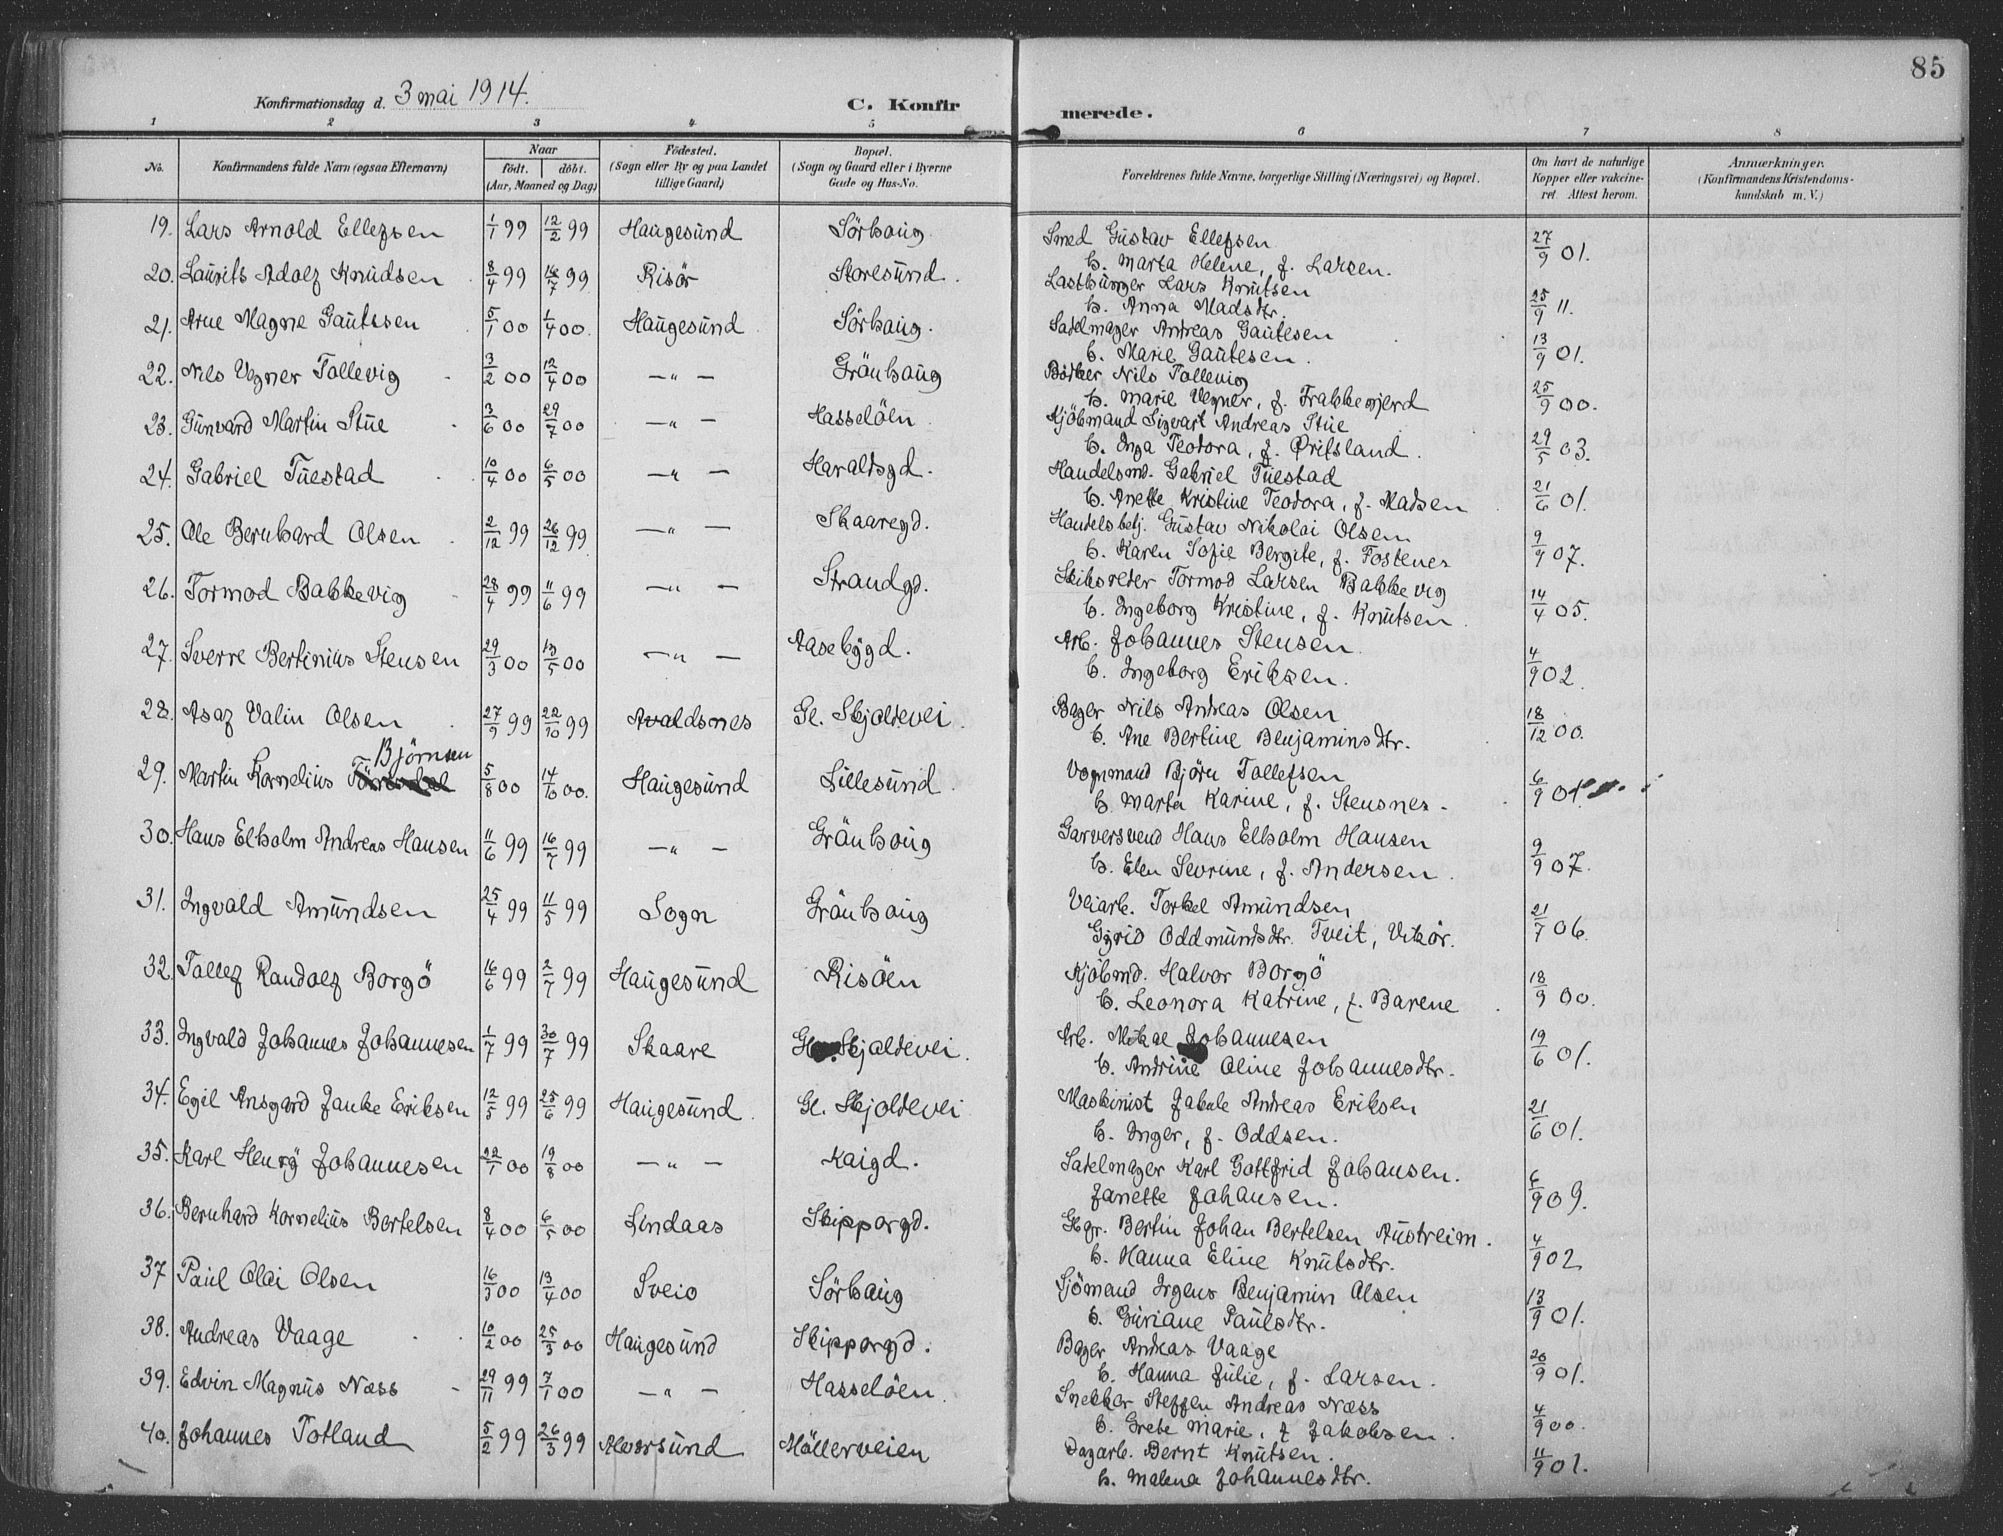 85
Konfirmationsdag d. 3 mai 1914.
C. Konfirmerede.
1 2 3 4 5 6 7 8
No. Konfirmandens fulde Navn (ogsaa Efternavn) Naar født. døbt. (Aar, Maaned og Dag) Fødested. (Sogn eller By og paa Landet tillige Gaard) Bopæl. (Sogn og Gaard eller i Byerne Gade og Hus-No. Forældrenes fulde Navne, borgerlige Stilling (Næringsvei) og Bopæl. Om havt de naturlige Kopper eller vakcineret. Attest herom. Anmærkninger. (Konfirmandens Kristendomskundskab m. V.)
19. Lars Arnold Ellefsen 1/1 99 12/2 99 Haugesund Sörhaug Smed Gustav Ellefsen 27/9 01.
h. Marta Helene, f. Larsen.
20. Laurits Adolf Knudsen 8/4 99 16/7 99 Risör Storesund. Lasthünger Lars Knutsen 25/9 11.
h. Anna Madsdtr.
21. Arne Magne Gautssen 5/1 00 1/4 00. Haugesund Sörhaug. Salmager Andreas Gautesen 13/9 01.
h. Marie Gautesen.
22. Nils Vegner Tollevig 3/2 00 12/4 00 —„— Gränhaug Bödker Nils Tollevig 25/9 00.
h. Marie Vegner, f. Frakkemjerd
23. Gunvard Martin Stue 3/6 00 29/7 00 —„— Hasselöen Kjöbmand Sigvart Andreas Stue 29/5 03.
h. Inga Teodora, f. Öritsland.
24. Gabriel Tuestad 10/4 00 6/5 00 —„— Haraldsgd. Handelsm. Gabriel Tuestad 21/6 01.
h. Anette Kristine Teodora, f. Madsen
25. Ole Bernhard Olsen 2/12 99 26/12 99 —„— Skaaregd. Handelsbetj. Gustav Nikolai Olsen 9/9 07.
h. Karen Sofie Bergite, f. Fostenes
26. Tormod Bakkevig 28/4 99 11/6 99 —„— Strandgd. Skibsreder Tormod Larsen Bakkevig 14/4 05.
h. Ingeborg Kristine, f. Knutsen.
27. Sverre Bertinius Stensen 29/3 00 13/5 00 —„— Aasebygd. Arb. Johannes Stensen. 4/9 02.
h. Ingeborg Eriksen.
28. Asaf Valin Olsen 27/9 99 22/10 99 Avaldsnes Gl. Skjoldevei. Bager Nils Andreas Olsen 18/12 00.
h. Ane Bertine Benjaminsdtr.
29. Martin Kornelius Björnsen 5/8 00 14/10 00. Haugesund Lillesund. Vognmand Björn Tollefsen 6/9 01.
h. Marta Karine, f. Stensnes.
30. Hans Elholm Andreas Hansen 11/6 99 16/7 99 —„— Gränhaug Garversvend Hans Elholm Hansen 9/9 07.
h. Elen Sevrine, f. Andersen.
31. Ingvald Amundsen 25/4 99 11/5 99 Sogn Gränhaug Veiarb. Torkel Amundsen 21/7 06.
Gyrid Oddmundsdtr. Tveit, Vikör.
32. Tallef Randolf Borgö 16/6 99 2/7 99 Haugesund Risöen Kjöbmd. Halvor Borgö 18/9 00.
h. Leonora Katrine, f. Barene
33. Ingvald Johannes Johannesen 1/7 99 30/7 99 Skaare Gl. Skjoldevei. Arb. Mikal Johannesen 19/6 01.
h. Andrine Oline Johannesdtr.
34. Egil Ansgard Janke Eriksen 12/5 99 25/6 99 Haugesund. Gl. Skjoldevei Maskinist Jakob Andreas Eriksen 21/6 01.
h. Inger, f. Oddsen.
35. Karl Henry Johannesen 22/1 00 19/8 00 —„— Kaigd. Salmager Karl Gottfrid Johansen. 6/9 09.
Janette Johansen.
36. Bernhard Kornelius Bertelsen 8/4 00 6/5 00 Lindaas Skippergd. Gbr. Bertin Johan Bertelsen Austreim. 4/9 02
h. Hanna Eline Knutsdtr.
37 Paul Olai Olsen 16/3 00 13/4 00 Sveio Sörhaug Sjömand Irgens Benjamin Olsen 13/9 01.
h. Guriane Paulsdtr.
38. Andreas Vaage 10/2 00 25/3 00 Haugesund Skippergd. Bager Andreas Vaage 20/9 01.
h. Hanna Julie, f. Larsen.
39. Edvin Magnus Næss 29/11 99 7/1 00 —„— Hasselöen. Snekker Steffen Andreas Næss 4/9 00.
h. Grete Marie, f. Jakobsen.
40. Johannes Totland 5/2 99 26/3 99 Alversund Möllerveien Dagarb. Bernt Knutsen. 11/9 01.
h. Malena Johannesdtr.